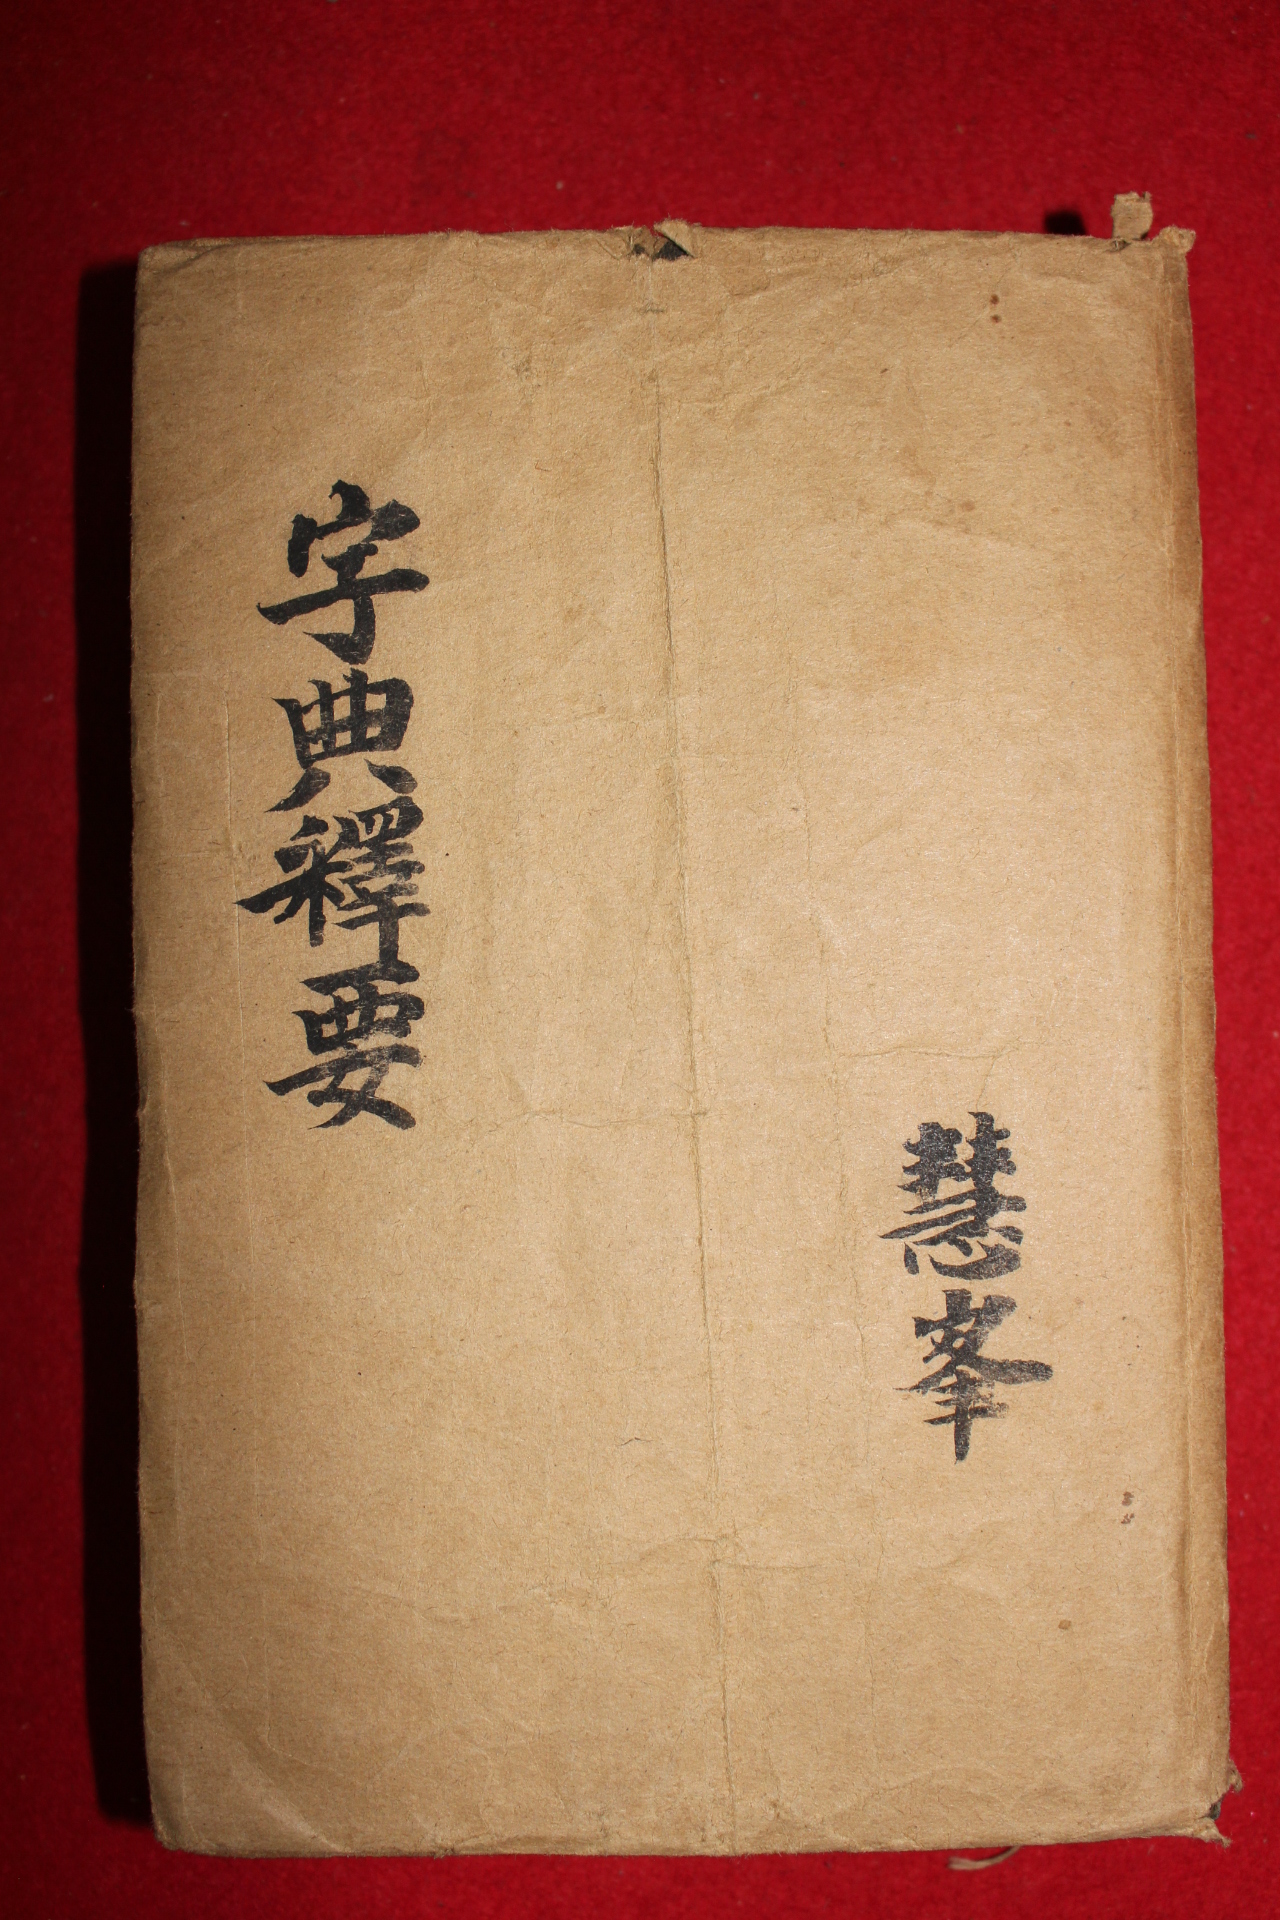 字典釋要
慧峯